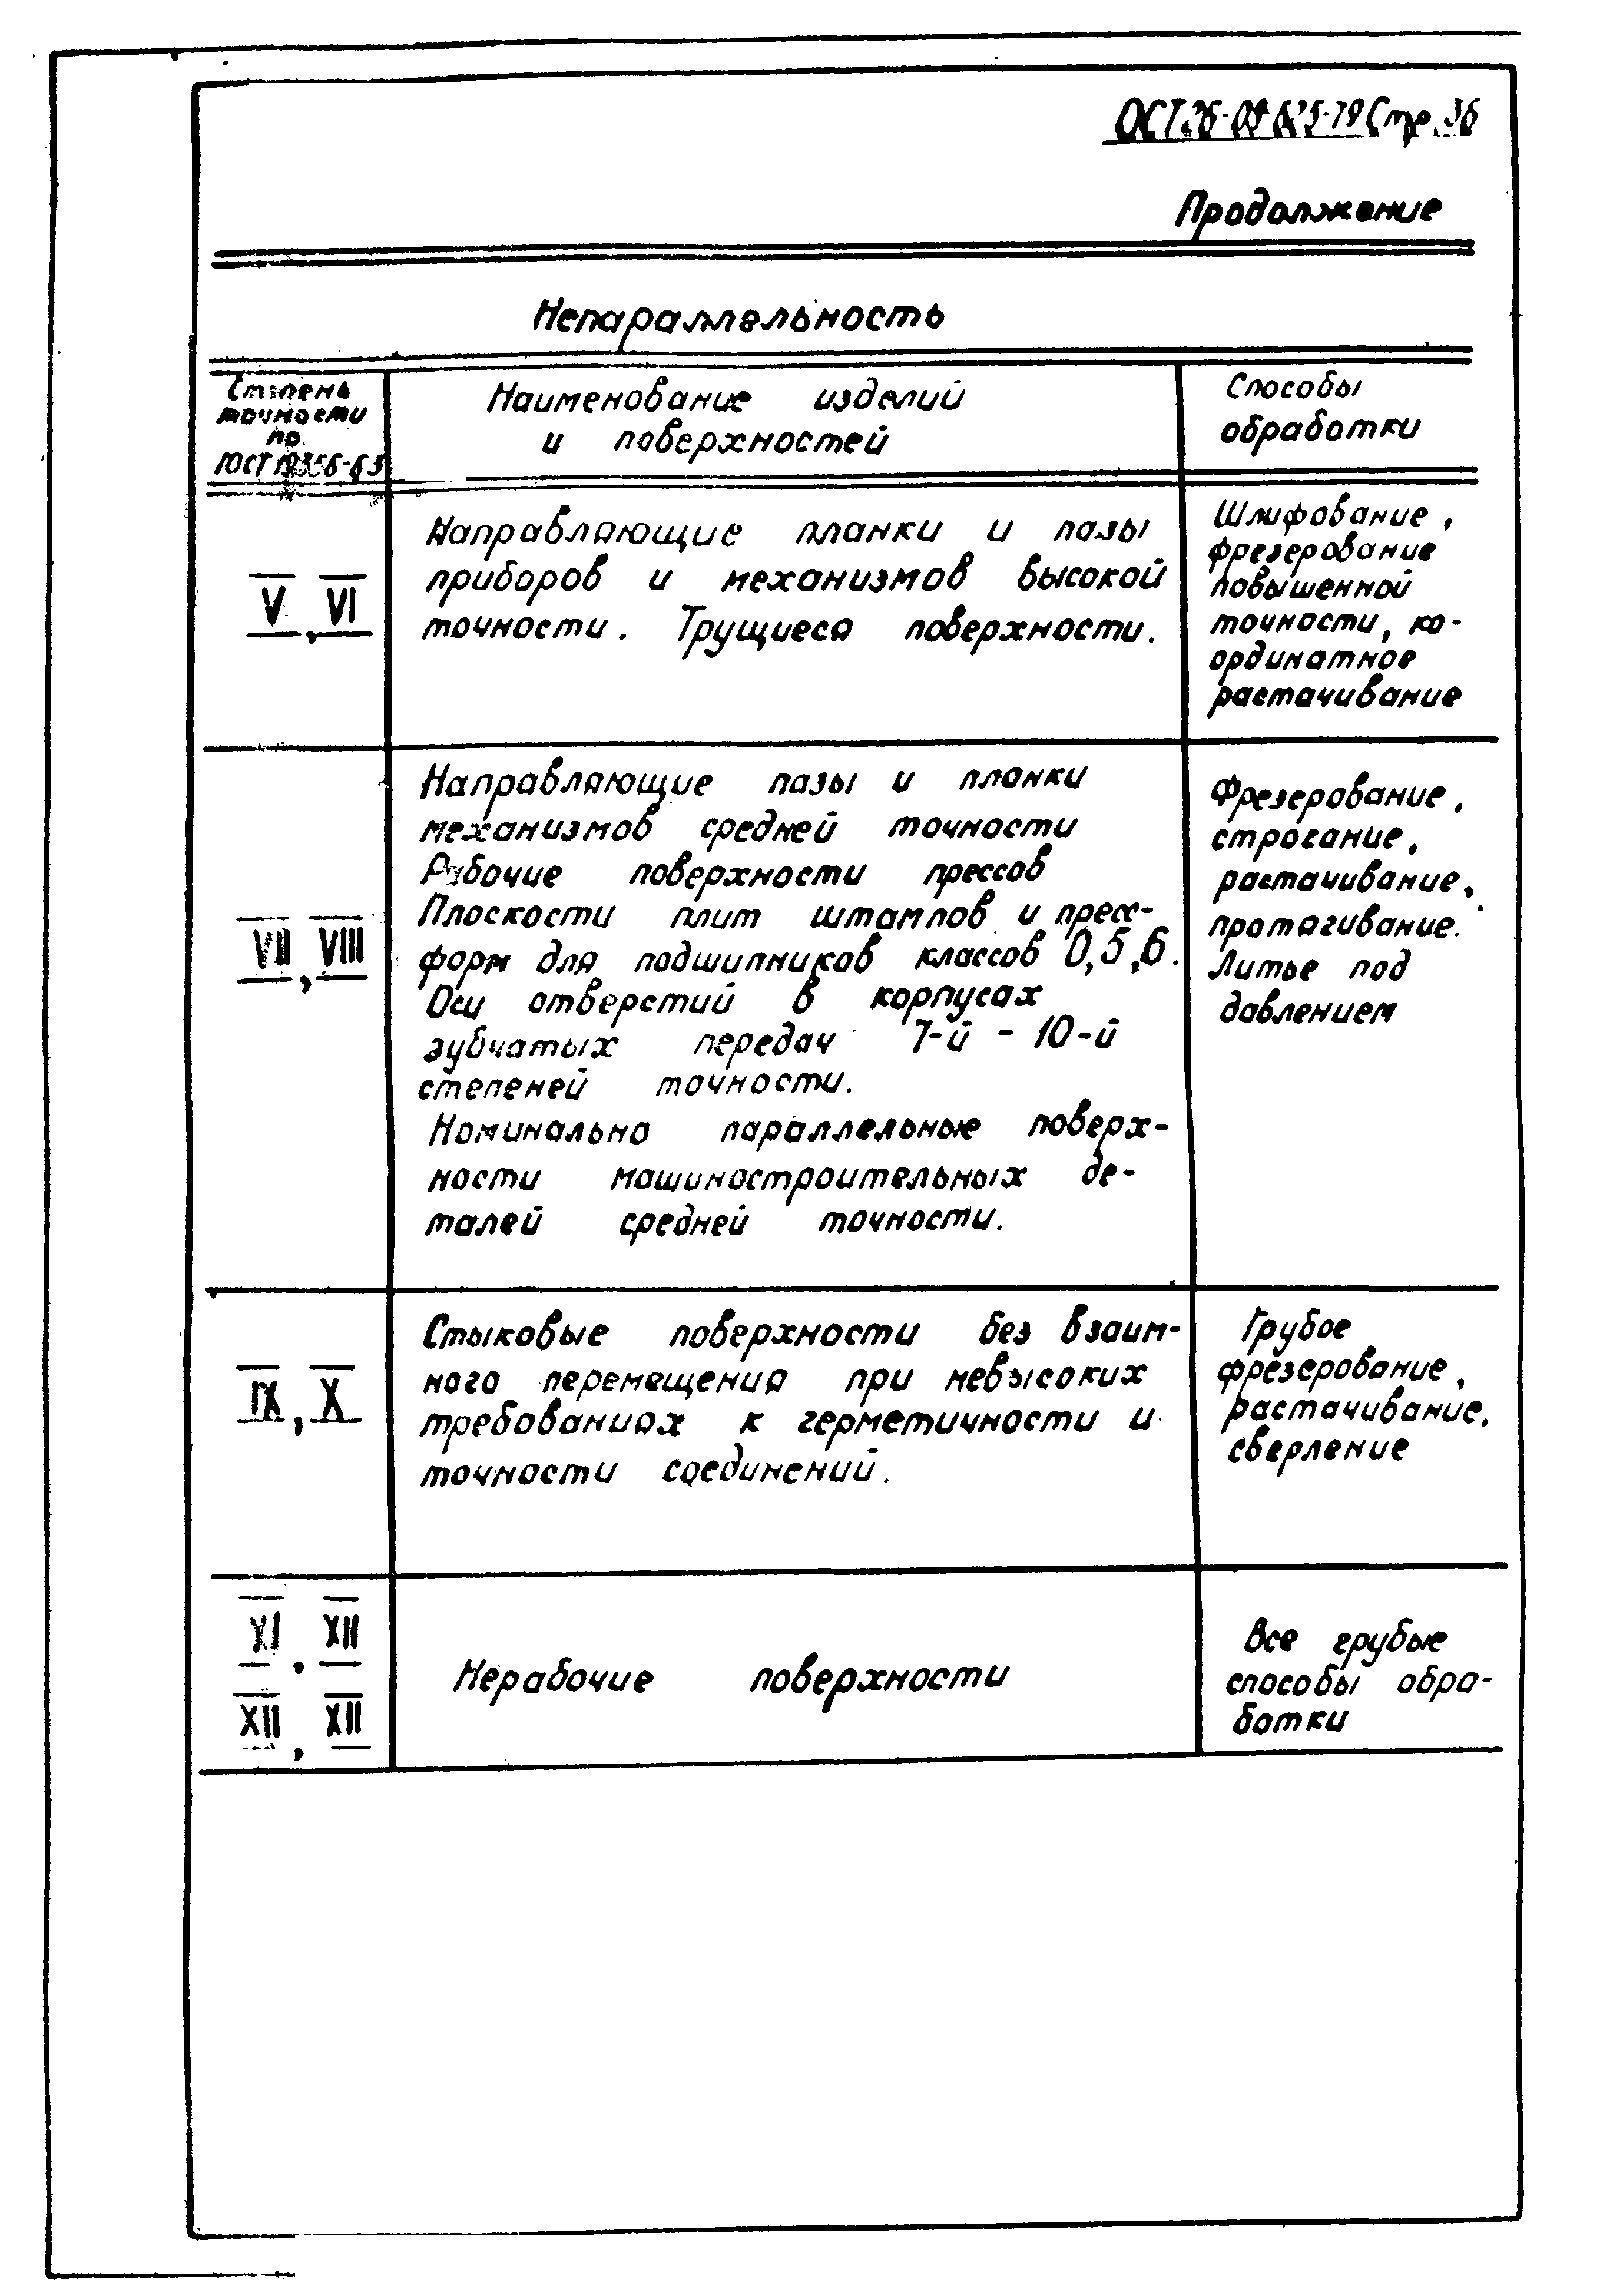 Стр. 36
Продолжение
Непараллельность
Степень
точности
по
ГОСТ 10356-63
Наименование изделий
и поверхностей
Способы
обработки
V, VI
Направляющие планки и пазы
приборов и механизмов высокой
точности. Трущиеся поверхности.
Шлифование,
фрезерование
повышенной
точности, ко-
ординатное
растачивание
VII, VIII
Направляющие пазы и планки
механизмов средней точности
Рабочие поверхности прессов
Плоскости плит штампов и пресс-
форм для подшипников классов 0, 5, 6.
Оси отверстий в корпусах
зубчатых передач 7-й - 10-й
степеней точности.
Номинально параллельные поверх-
ности машиностроительных де-
талей средней точности.
Фрезерование,
строгание,
растачивание,
протягивание.
Литье под
давлением
IX, X
Стыковые поверхности без взаим-
ного перемещения при невысоких
требованиях к герметичности и
точности соединений.
Грубое
фрезерование,
растачивание,
сверление
XI, XII
XII, XII
Нерабочие поверхности
Все грубые
способы обра-
ботки